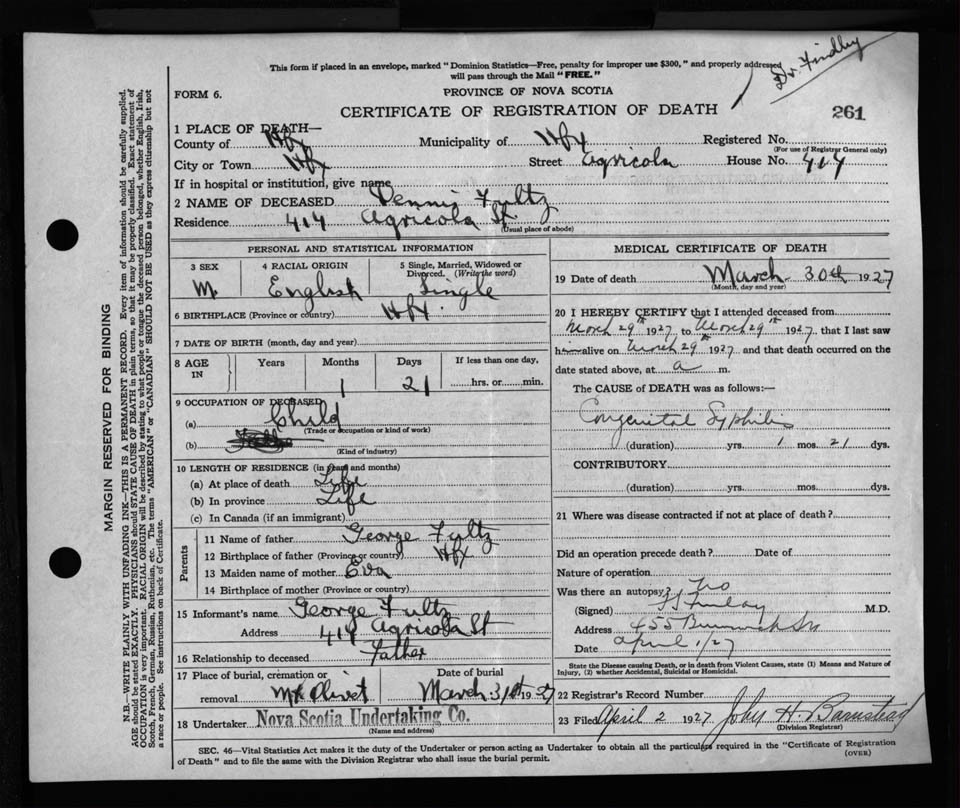 This form if placed in an envelope, marked "Dominion Statistics—Free, penalty for improper use $300," and properly addressed
will pass through the Mail "FREE."
Dr. Findley
FORM 6.
PROVINCE OF NOVA SCOTIA
CERTIFICATE OF REGISTRATION OF DEATH
261
1 PLACE OF DEATH—
County of Hfx Municipality of Hfx Registered No.
(For use of Registrar General only)
City or Town Hfx Street Agricola House No. 414
If in hospital or institution, give name
2 NAME OF DECEASED Dennis Fultz
Residence 414 Agricola St
(Usual place of abode)
PERSONAL AND STATISTICAL INFORMATION
3 SEX 4 RACIAL ORIGIN 5 Single, Married, Widowed or
Divorced. (Write the word)
M. English Single
6 BIRTHPLACE (Province or country) Hfx.
7 DATE OF BIRTH (month, day and year)
8 AGE
IN
Years Months Days If less than one day,
1 21 hrs. or min.
9 OCCUPATION OF DECEASED
(a) Child
(Trade or occupation or kind of work)
(b)
(Kind of industry)
10 LENGTH OF RESIDENCE (in years and months)
(a) At place of death Life
(b) In province Life
(c) In Canada (if an immigrant)
Parents
11 Name of father George Fultz
12 Birthplace of father (Province or country) Hfx
13 Maiden name of mother Eva
14 Birthplace of mother (Province or country)
15 Informant's name George Fultz
Address 414 Agricola St
16 Relationship to deceased Father
17 Place of burial, cremation or Date of burial
removal Mt Olivet March 31st 1927
18 Undertaker Nova Scotia Undertaking Co.
(Name and address)
MEDICAL CERTIFICATE OF DEATH
19 Date of death March 30th 1927
(Month, day and year)
20 I HEREBY CERTIFY that I attended deceased from
March 29th 1927 to March 29th 1927, that I last saw
him alive on March 29th 1927 and that death occurred on the
date stated above, at a m.
The CAUSE of DEATH was as follows:—
Congenital Syphilis
(duration) yrs. 1 mos. 21 dys.
CONTRIBUTORY
(duration) yrs. mos. dys.
21 Where was disease contracted if not at place of death?
Did an operation precede death? Date of
Nature of operation
Was there an autopsy? No
(Signed) Finlay M.D.
Address 455
Date April 1/27
State the Disease causing Death, or in death from Violent Causes, state (1) Means and Nature of
Injury, (2) whether Accidental, Suicidal or Homicidal.
22 Registrar's Record Number
23 Filed April 2 1927. John H. Barnstead
(Division Registrar)
SEC. 46—Vital Statistics Act makes it the duty of the Undertaker or person acting as Undertaker to obtain all the particulars required in the "Certificate of Registration
of Death" and to file the same with the Division Registrar who shall issue the burial permit.
(OVER)
MARGIN RESERVED FOR BINDING
N.B.—WRITE PLAINLY WITH UNFADING INK—THIS IS A PERMANENT RECORD. Every item of information should be carefully supplied.
AGE should be stated EXACTLY. PHYSICIANS should STATE CAUSE OF DEATH in plain terms, so that it may be properly classified. Exact statement of
OCCUPATION is very important. RACIAL ORIGIN will be described by stating to what people or tongue the deceased person belonged, whether English, Irish,
Scotch, French, German, Russian, Ruthenian, etc. The terms "AMERICAN" or "CANADIAN" SHOULD NOT BE USED as they express citizenship but not
a race or people. See instructions on back of Certificate.